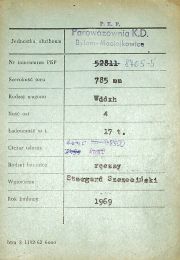 P. K. P.
Jednostka służbowa
Parowozownia K.D.
Bytom-Maciejkowice
Nr inwentarza PKP 52811 8405-S
Szerokość toru 785 mm
Rodzaj wagonu Wddxh
Ilość osi 4
Ładowność w t. 17 t.
Ciężar własny
Rodzaj hamulca ręczny
Wytwórnia Stargard Szczeciński
Rok budowy 1969